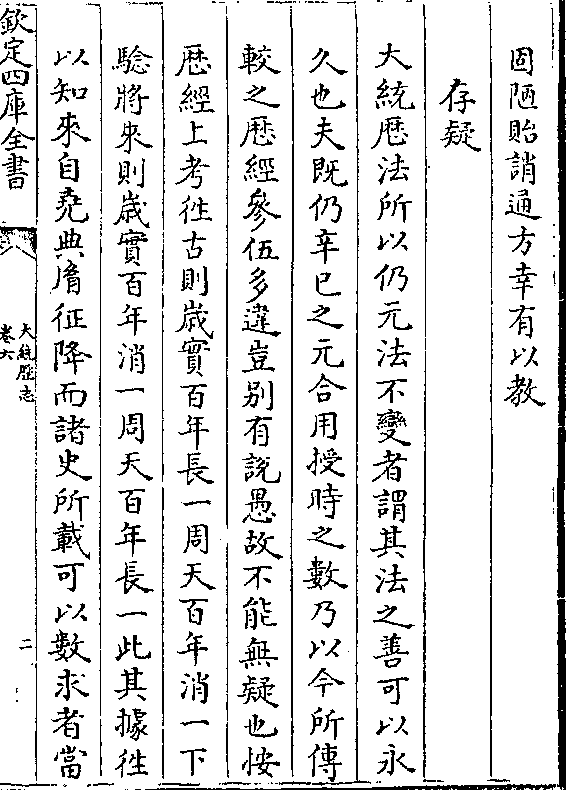 固陋貽誚通方幸有以教
存疑
大統厯法所以仍元法不變者謂其法之善可以永
久也夫既仍辛巳之元合用授時之數乃以今所傳
較之厯經參伍多違豈别有説愚故不能無疑也按
厯經上考徃古則歳實百年長一周天百年消一下
驗將來則歳實百年消一周天百年長一此其據徃
以知來自堯典胤征降而諸史所載可以數求者當
欽定四庫全書
大統厯志
卷六
二